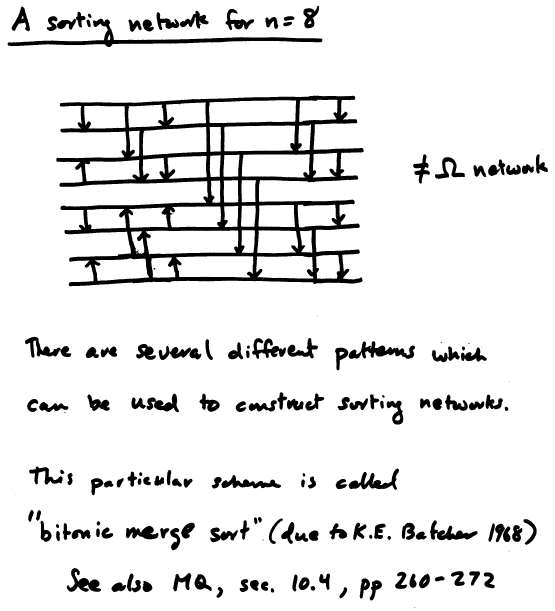 A sorting network for n = 8
≠ Ω network
There are several different patterns which
can be used to construct sorting networks.
This particular scheme is called
"bitonic merge sort" (due to K.E. Batcher 1968)
See also MQ, sec. 10.4, pp 260-272